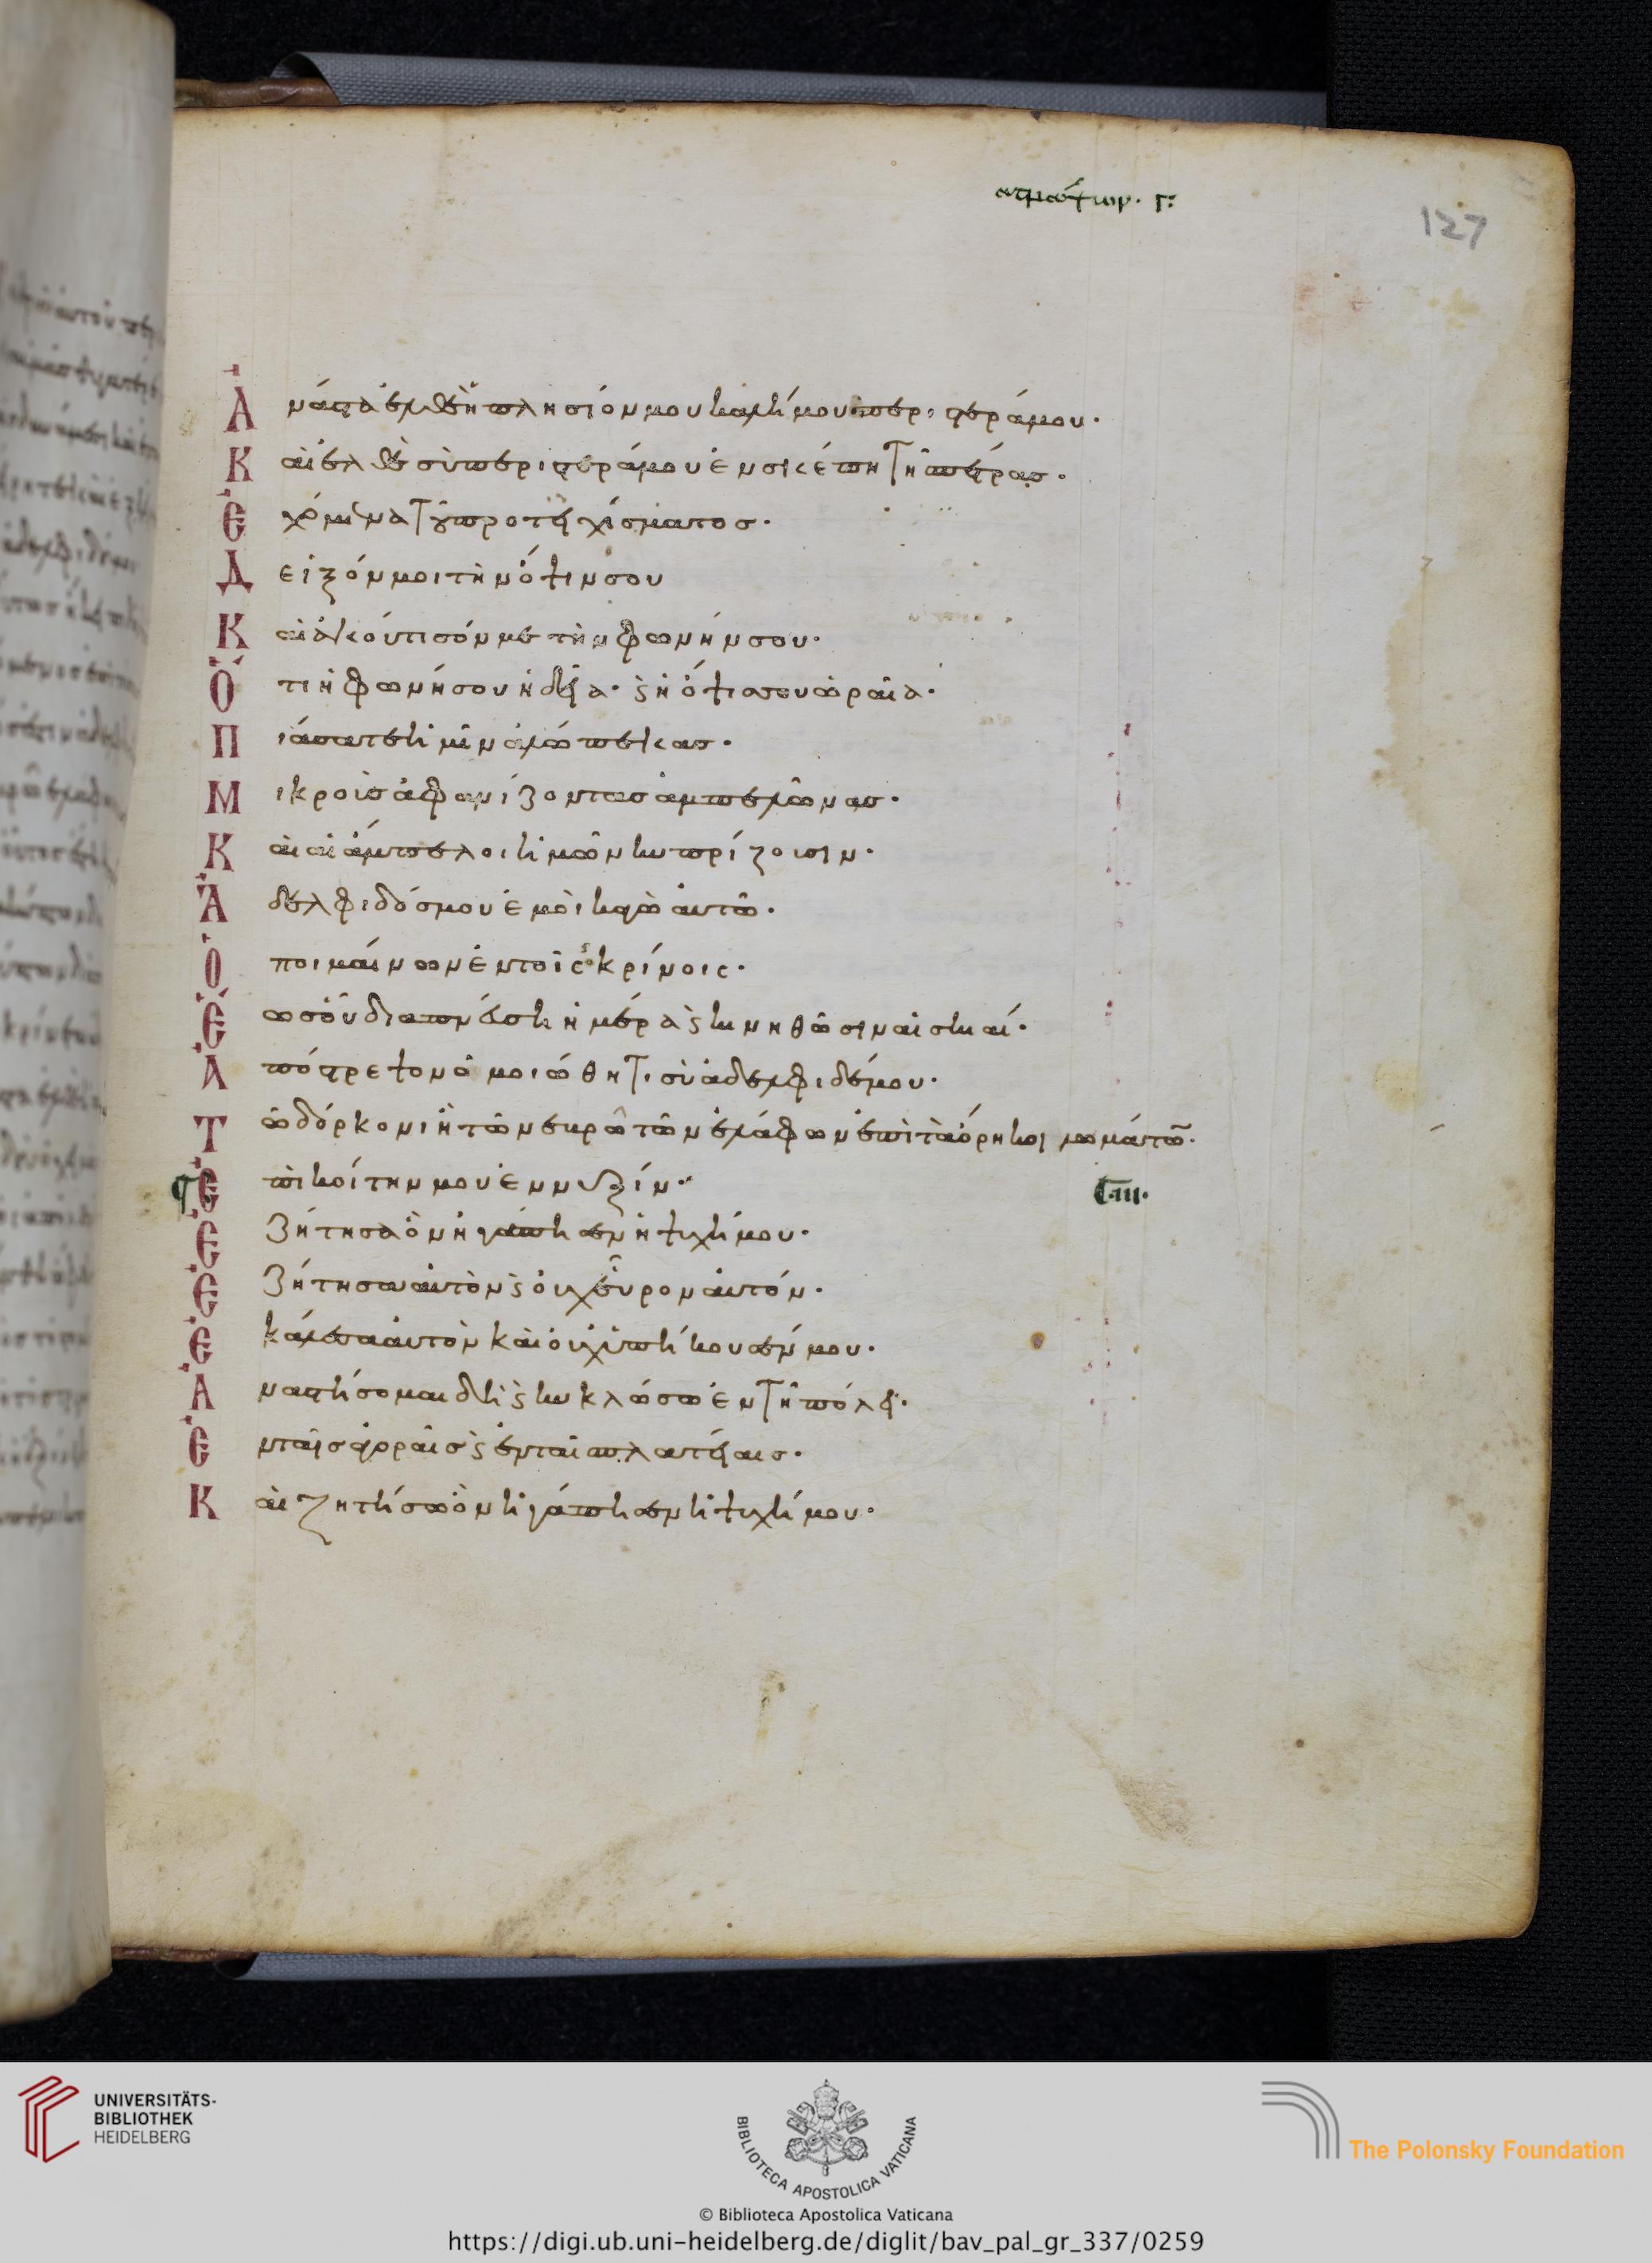 ασμάτων. γ:
127
Ἀνάστα ἐλθὲ ἡ πλησίον μου καλή μου περιστερά μου·
Καὶ ἐλθὲ σὺ περιστερά μου ἐν σκέπῃ τῆς πέτρας·
Ἐχόμενα τοῦ προτειχίσματος·
Δείξόν μοι τὴν ὄψιν σου
Καὶ ἀκούτισόν με τὴν φωνήν σου·
Ὅτι ἡ φωνή σου ἡδεῖα· καὶ ἡ ὄψις σου ὡραία·
Πιάσατε ἡμῖν ἀλώπεκας·
Μικροὺς ἀφανίζοντας ἀμπελῶνας·
Καὶ αἱ ἄμπελοι ἡμῶν κυπρίζουσιν·
Ἀδελφιδός μου ἐμοὶ κἀγὼ αὐτῷ·
Ὁ ποιμαίνων ἐν τοῖς κρίνοις·
Ἕως οὗ διαπνεύσῃ ἡ ἡμέρα καὶ κινηθῶσιν αἱ σκιαί·
Ἀπόστρεψον ὁμοιώθητι σὺ ἀδελφιδέ μου·
Τῷ δόρκωνι ἢ τῷ νεβρῷ τῶν ἐλάφων ἐπὶ τὰ ὄρη κοιλωμάτων·
Ἐπὶ κοίτην μου ἐν νυξίν·
C·III·
Ἐζήτησα ὃν ἠγάπησεν ἡ ψυχή μου·
Ἐζήτησα αὐτὸν καὶ οὐχ εὗρον αὐτόν·
Ἐκάλεσα αὐτὸν καὶ οὐχ ὑπήκουσέν μου·
Ἀναστήσομαι δὴ καὶ κυκλώσω ἐν τῇ πόλει·
Ἐν ταῖς ἀγοραῖς καὶ ἐν ταῖς πλατείαις·
Καὶ ζητήσω ὃν ἠγάπησεν ἡ ψυχή μου·
UNIVERSITÄTS-
BIBLIOTHEK
HEIDELBERG
BIBLIOTECA APOSTOLICA VATICANA
The Polonsky Foundation
© Biblioteca Apostolica Vaticana
https://digi.ub.uni-heidelberg.de/diglit/bav_pal_gr_337/0259